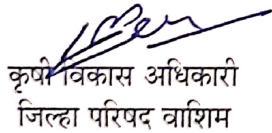 कृषी विकास अधिकारी
जिल्हा परिषद वाशिम